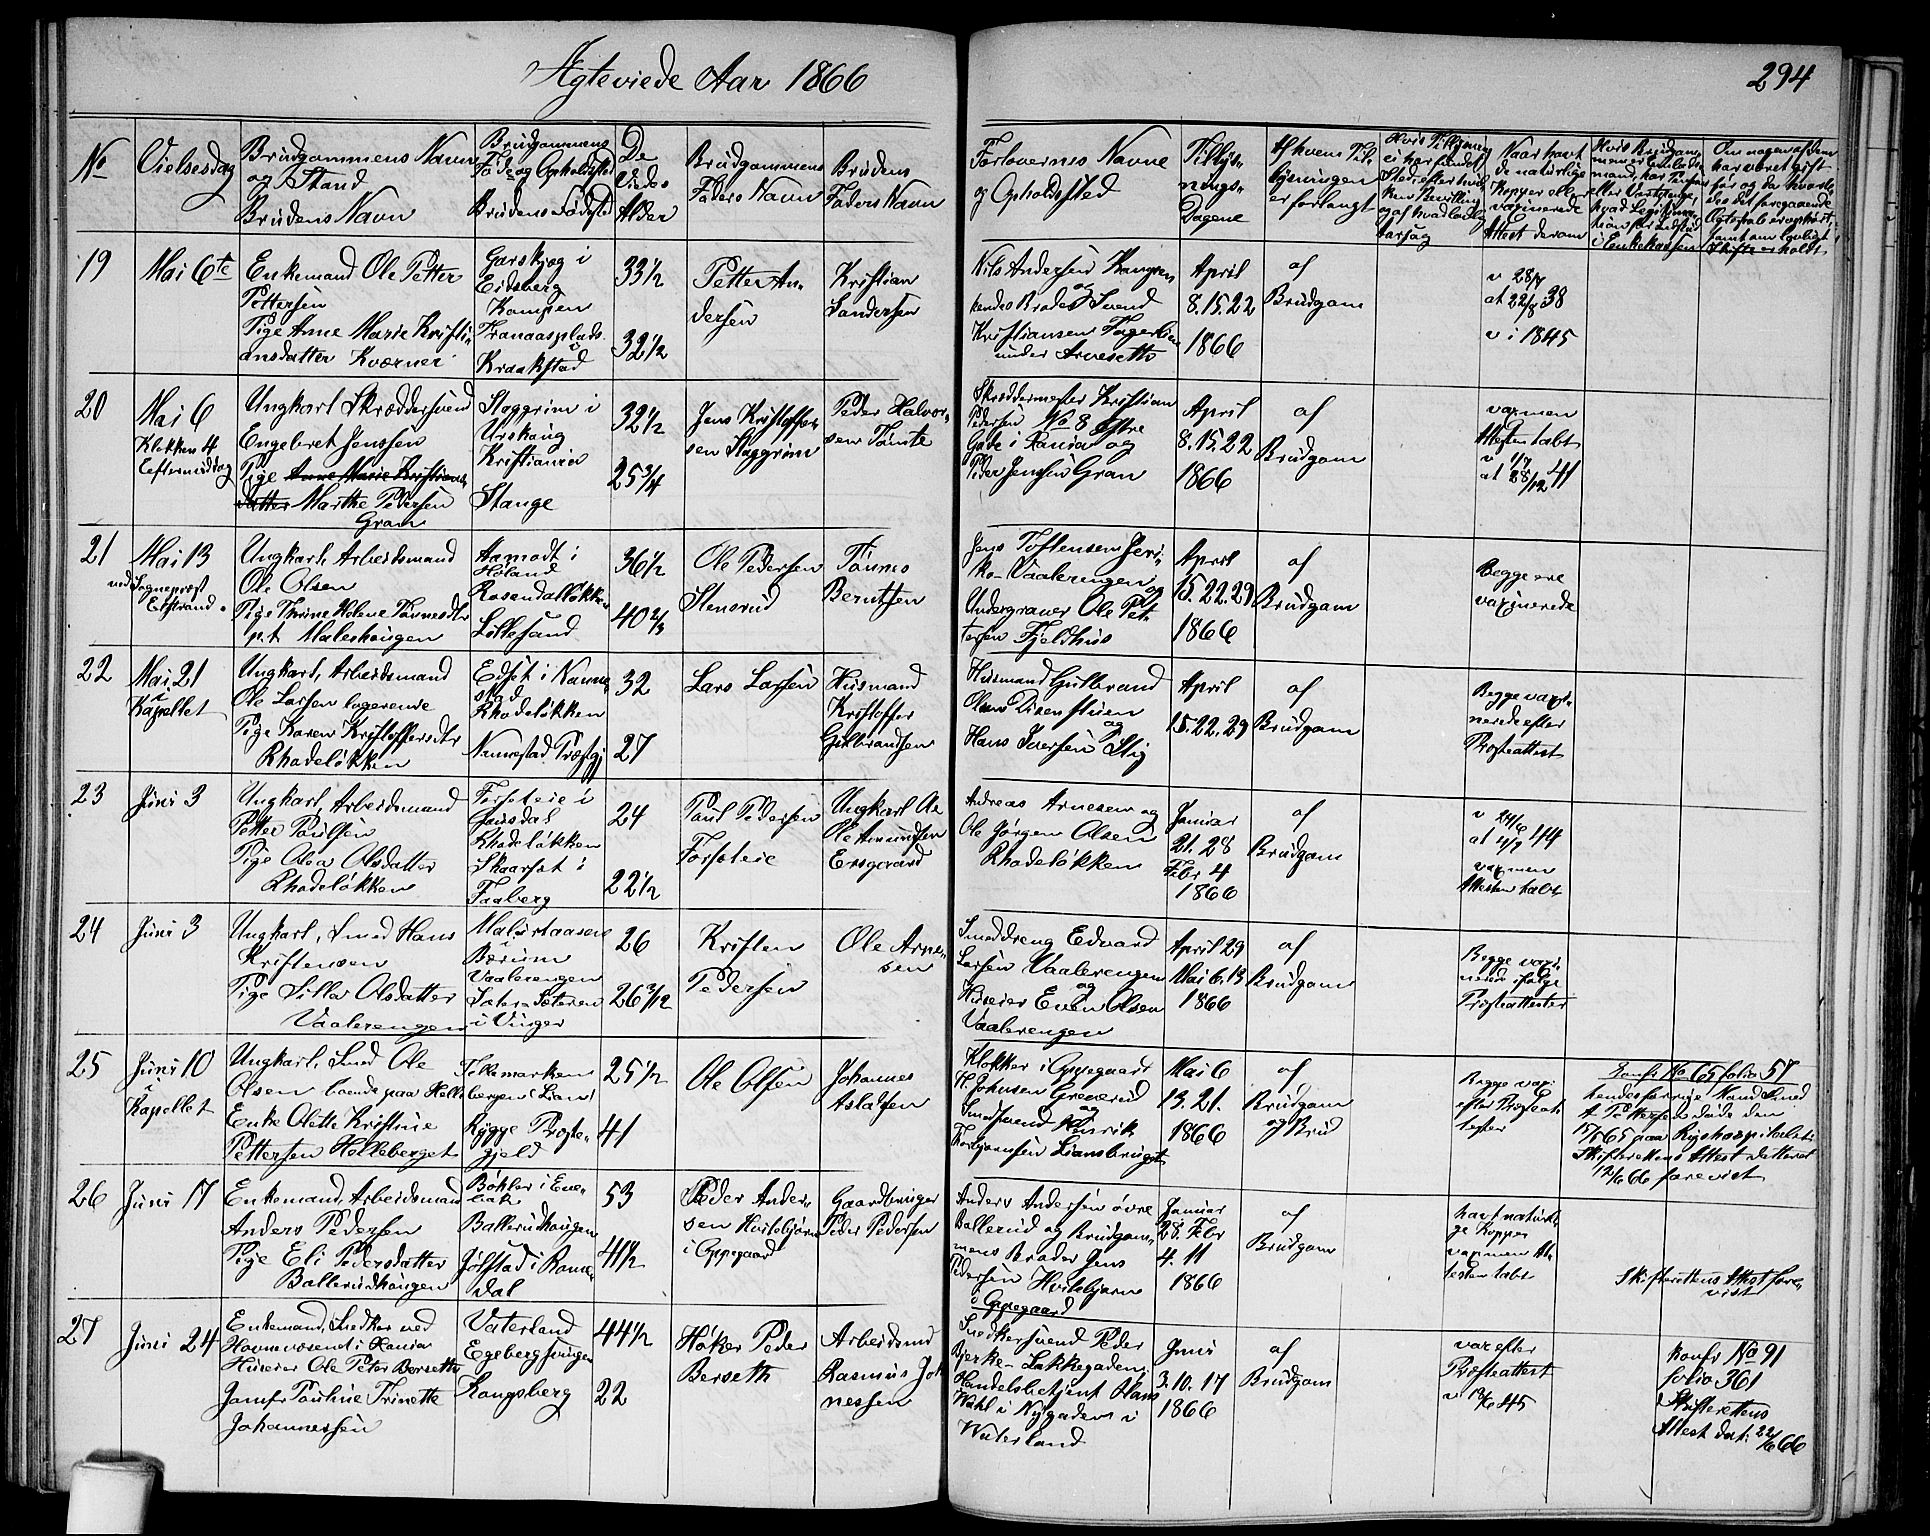 Ægteviede Aar 1866
294
No
Vielsesdag
Brudgommens Navn
og Stand
Brudens Navn
Brudgommens
Føde og Opholdssted
Brudens Fødested
De
Viedes
Alder
Brudgommens
Faders Navn
Brudens
Faders Navn
Forlovernes Navne
og Opholdssted
Tillys-
nings-
Dagene
Af hvem Til-
lysningen
er forlangt
Hvis Tillysning
ei har fundet
Sted, efter hvil
ken Bevilling
og af hvad lovlig
Aarsag
Naar havt
de naturlige
Kopper eller
vaxinerede
Attest derom
Om nogen af dem
har været gift
før og
19
Mai 6te
Enkemand Ole Petter
Pettersen
Pige Anne Marie Kristi-
ansdatter Kværner
Garskjøg i
Eidsberg
Kampen
Tranaasplads
Kraakstad
33 1/2
32 1/2
Petter An-
dersen
Kristian
Sandersen
Nils Andersen Kampen
kendes Broder og Svend
Kristiansen Fagerlien
under Arnesetto
April
8.15.22
1866
af
Brudgom
v 28/7
at 22/8 38
v i 1845
20
Mai 6
Klokken 4
Eeftermiddag
Ungkarl Skræddersvend
Engebret Jenssen
Pige Anne Marie Kristians-
datter Marthe Pedersen
Gran
Sloggrim i
Urskoug
Kristiania
Stange
32 1/2
25 3/4
Jens Kristoffer-
sen Sloggrim
Peder Halvor-
sen Tomte
Skræddermester Kristian
Pedersen No 8 Østre
Gade i Xania og
Peder Jenssen Gran
April
8.15.22
1866
af
Brudgom
vax men
Attesten tabt
v 1/7
at 28/12 41
21
Mai 13
ved Sogneprest
Eckstrand
Ungkarl, Arbeidsmand
Ole Olsen
Pige Thrine Helene Tønnesdtr
p.t. Malerhaugen
Aamodt i
Høland
Rosendalløkken
Lillesand
36 1/2
40 2/3
Ole Pedersen
Stensrud
Tønnes
Berntsen
Jens Toftensen Jeri-
ko- Vaalerengen
og
Undergraver Ole Pet-
tersen Fjeldhus
April
15.22.29
1866
af
Brudgom
Begge ere
vaxinerede
22
Mai 21
i
Kapellet
Ungkarl, Arbeidsmand
Ole Larsen logerende
Pige Karen Kristoffersdtr
Rhodeløkken
Edset i Nanne-
stad
Rhodeløkken
Nannestad Præstgj
32
27
Lars Larsen
Husmand
Kristoffer
Gulbrandsen
Husmand Gulbrand
Olsen Disenstuen
og
Hans Iversen Stig
April
15.22.29
af
Brudgom
Begge vaxi-
nerede efter
Præsteattest
23
Juni 3
Ungkarl, Arbeidsmand
Petter Paulsen
Pige Olea Olsdatter
Rhodeløkken
Forseteie i
Gausdal
Rhodeløkken
Skaarset i
Faaberg
24
22 1/2
Paul Pedersen
Forseteie
Ungkarl
Ole Amundsen
Andreas Arnesen og
Ole Jørgen Olsen
Rhodeløkken
Januar
21.28
Febr 4
1866
af
Brudgom
v 24/6
at 4/7 44
vax men
Attesten tabt
24
Juni 3
Ungkarl, Smed Hans
Kristensen
Pige Silla Olsdatter
Vaalerengen
i
Bærum
Vaalerengen
i Vinger
26
26 3/12
Kristen
Pedersen
Ole Arne-
sen
Smeddreng Edvard
Larsen Vaalerengen
og
Huseier Even Olsen
Vaalerengen
April 29
Mai 6.13
1866
af
Brudgom
Begge vaxi-
nerede ifølge
Præsteattester
25
Juni 10
i
Kapellet
Ungkarl, Smed Ole
Olsen boende paa Helle
Enke Olette Kristine
Pettersen Helleberget
Tellemarken
bergen (Lian)
Rygge Præste-
gjeld
25 1/2
41
Ole Olsen
Johannes
Aslaksen
Klokker i Oppegaard
H. Johnsen Greverud
og
Smedsvend Henrik
Torbjørnsen Liansbruget
Mai 6
13.21.
1866
af
Brudgom
og Brud
Begge vaxi
efter Præsteat-
tester
Konfr No 65 folio 57
hendes forrige Mand Smed
A Pettersen døde den
15/5 65 paa Rigshospitalet
Skifterettens Attest dateret
12/6 66 forevist
26
Juni 17
Enkemand, Arbeidsmand
Anders Pedersen
Pige Eli Pedersdatter
Ballerudhaugen
Bøhler i Ene-
bak
Ballerudhaugen
Jølstad i Roms-
dal
53
41 1/2
Peder Ander-
sen Hvidebjørn
i Oppegaard
Gaardbruger
Peder Pedersen
Anders Andersen øvre
Ballerud og Brudgom-
mens Broder Jens
Pedersen Hvidebjørn
i Oppegaard
Januar
28. Febr
4. 11
1866
af
Brudgom
havt naturli-
ge Kopper
vax men At-
testen tabt
Skifterettens Attest fore-
vist
27
Juni 24
Enkemand, Snedker ved
Havnvæsenet i Xania
Huseier Ole Peter Berseth
Jomfr Pauline Trinette
Johannessen
Vaterland
Egebergsveien
Kongsberg
44 1/2
22
Høker Peder
Berseth
Arbeidsmd
Rasmus Joh
nessen
Snedkersvend Peder
Bjerke- Lakkegaden,
Handelsbetjent Hans
Wahl i Nygaden i
Waterland
Juni
3.10.17
1866
af
Brudgom
vax efter
Præsteattest
v 18/6 45
Konfr No 91
folio 361
Skifterettens
Attest dat: 22/6 66